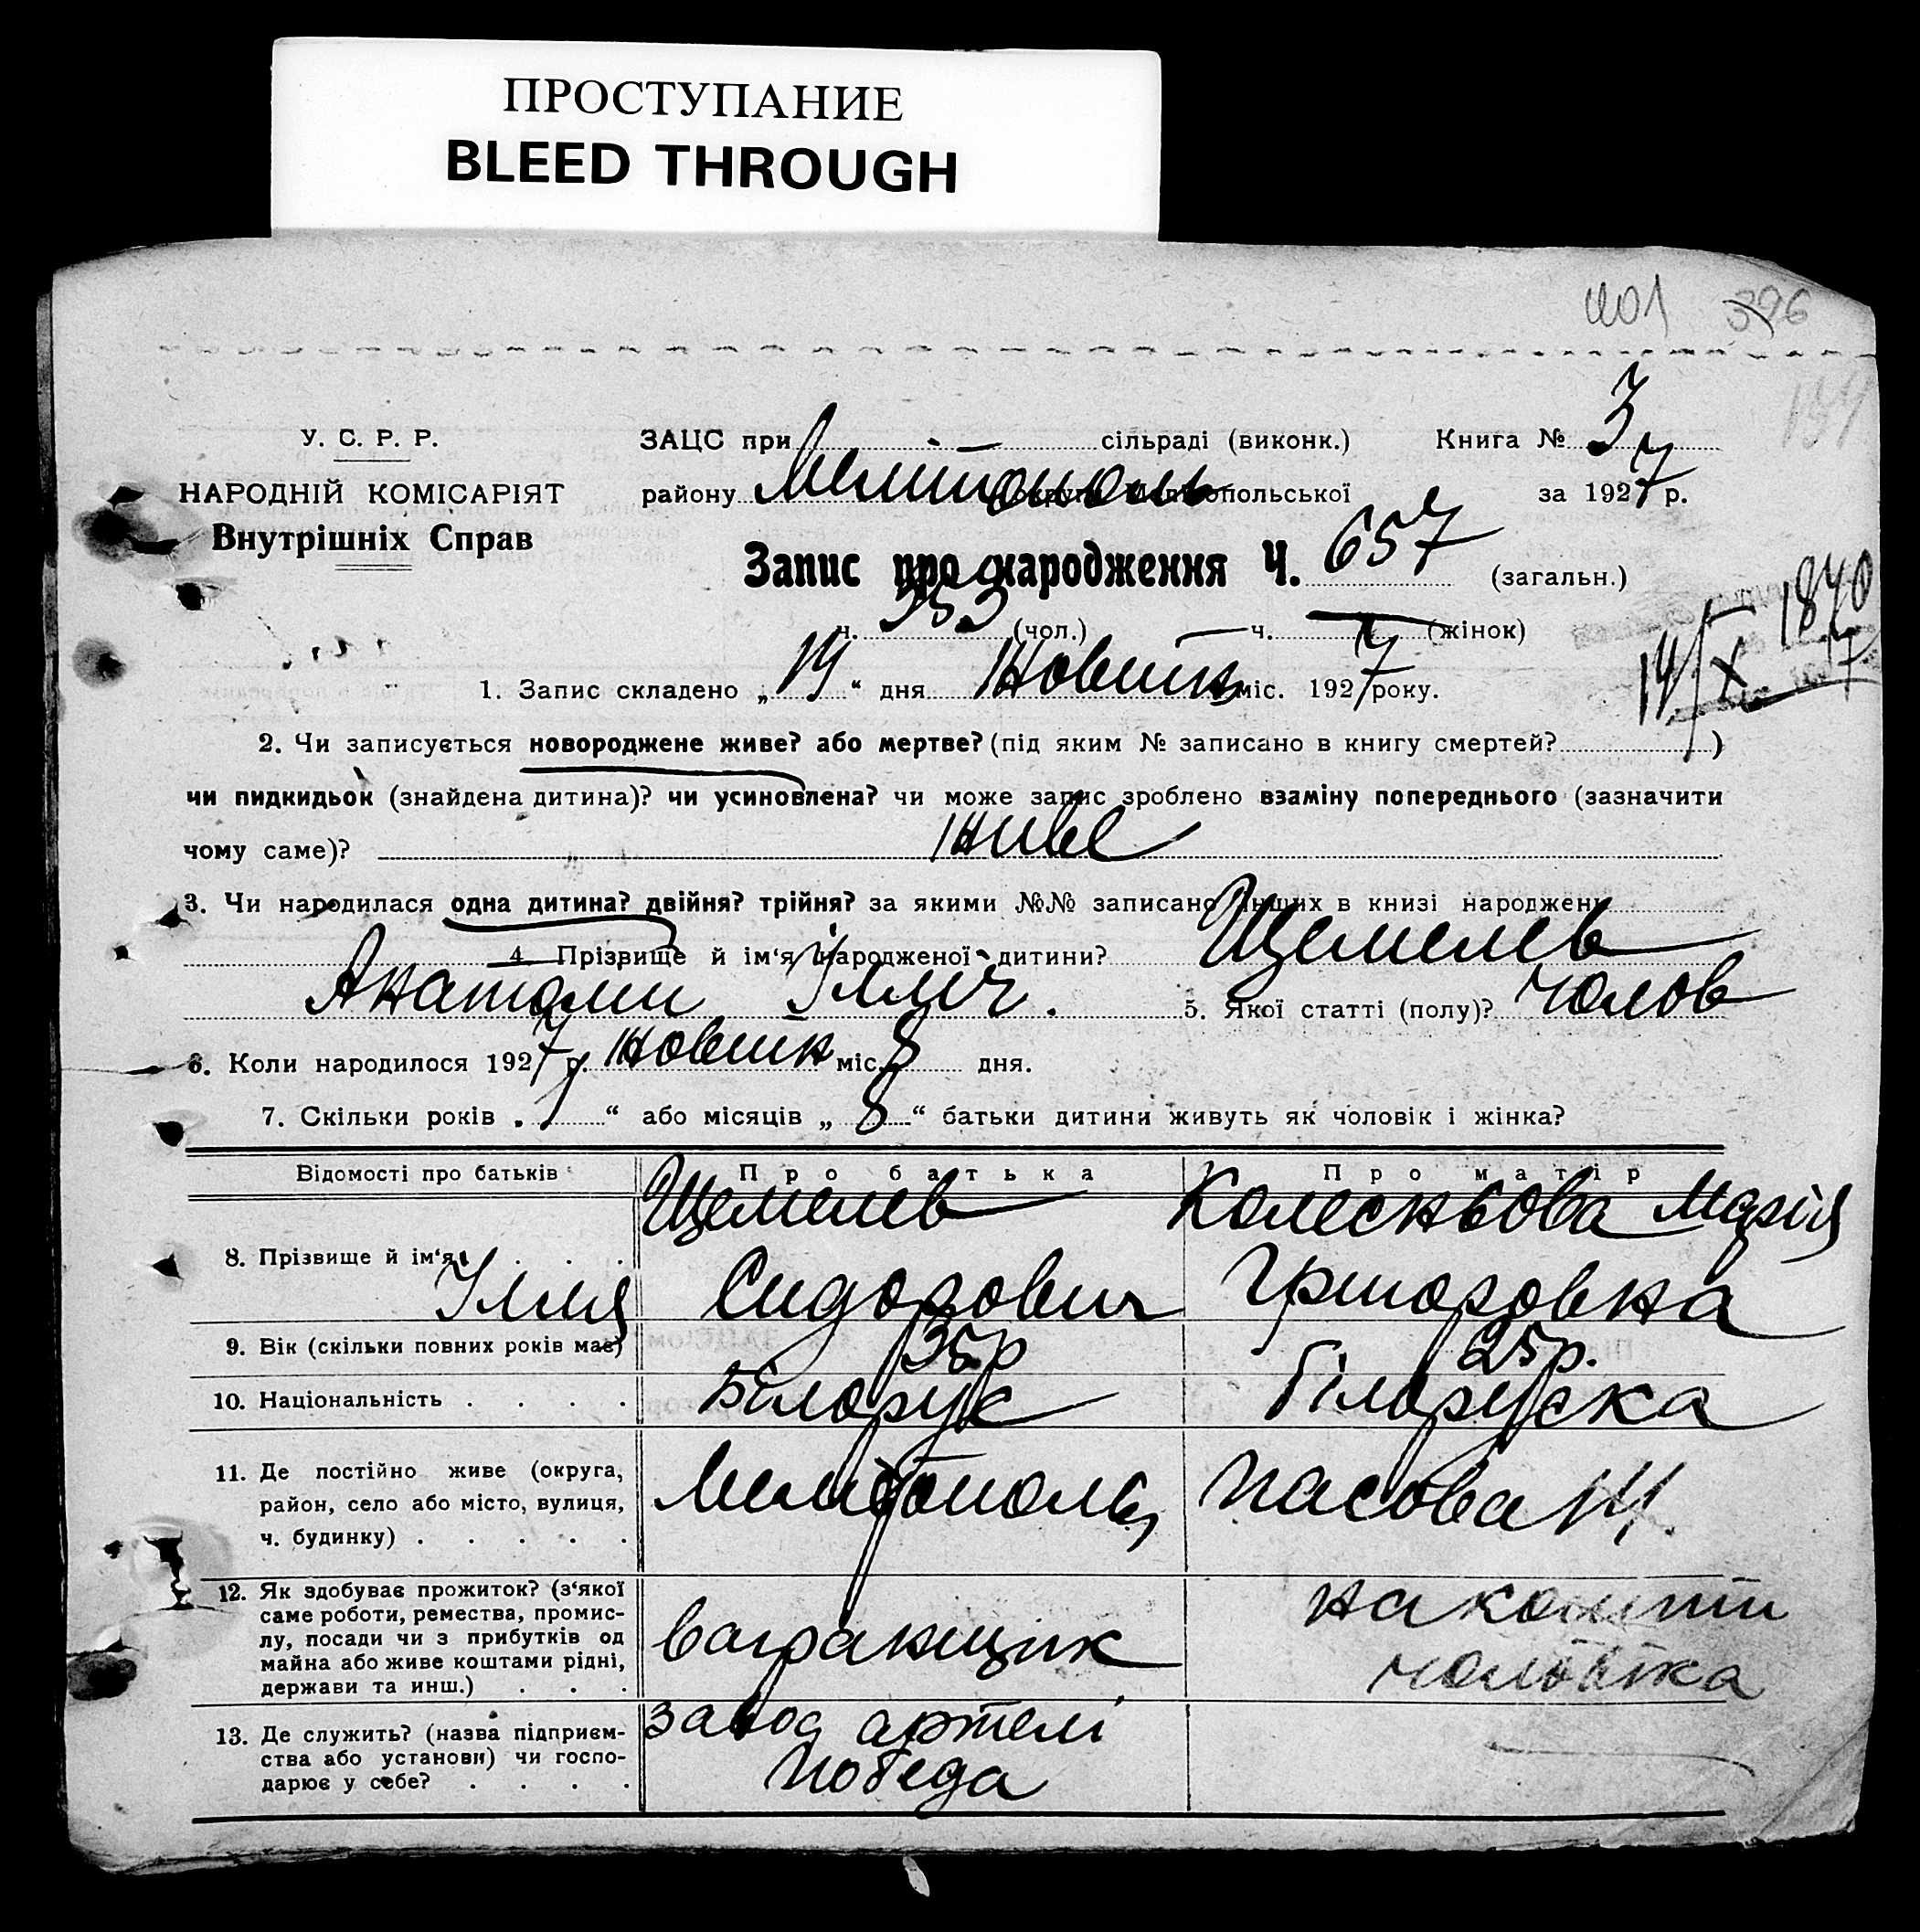 ПРОСТУПАНИЕ
BLEED THROUGH
401 396
У. С. Р. Р.
НАРОДНІЙ КОМІСАРІЯТ
Внутрішніх Справ
ЗАЦС при сільраді (виконк.) Книга № 3
району Мелітополь округи Мелітопольської за 1927 р.
Запис про народження Ч. 657 (загальн.)
ч. 353 (чол.) ч. — (жінок)
1. Запис складено „14“ дня Жовтня міс. 1927 року.
2. Чи записується новороджене живе? або мертве? (під яким № записано в книгу смертей? )
чи пидкидьок (знайдена дитина)? чи усиновлена? чи може запис зроблено взаміну попереднього (зазначити
чому саме)? живе
3. Чи народилася одна дитина? двійня? трійня? за якими №№ записано інших в книзі народжень
4. Прізвище й ім‘я народженої дитини? Щемелев
Анатолий Ілліч. 5. Якої статті (полу)? чолов
6. Коли народилося 1927 р. Жовтн міс. 8 дня.
7. Скільки років „ 1 “ або місяців „ 8 “ батьки дитини живуть як чоловік і жінка?
Відомості про батьків Про батька Про матір
8. Прізвище й ім‘я Щемелев Ілля Сидорович Колеснькова Марія Григоровна
9. Вік (скільки повних років має) 35р 25р.
10. Національність . . . . Білорус Білоруска
11. Де постійно живе (округа,
район, село або місто, вулиця,
ч. будинку) . . . . . Мелітополь,
12. Як здобуває прожиток? (з‘якої
саме роботи, ремества, промис-
лу, посади чи з прибутків од
майна або живе коштами рідні,
держави та инш.) . . . вагранщик на кошти чоловіка
13. Де служить? (назва підприєм-
ства або установи) чи госпо-
дарює у себе? . . . . завод артелі Победа